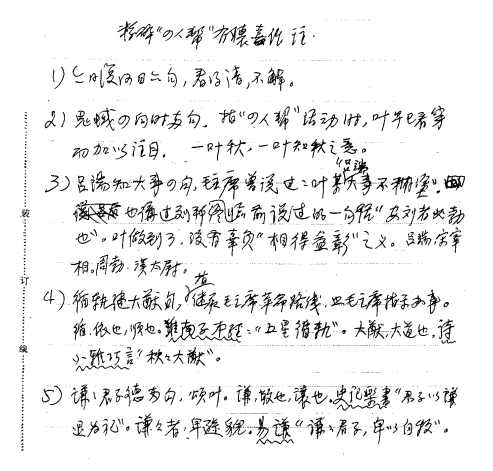 粉碎"四人帮"有怀嘉作 注.
1) 句，君子清，不解。
2) 鬼蜮 句，指"四人帮"活动时，叶早已看穿
而加以注目，一叶秋，一叶知秋之意。
3) 吕端知大事句，毛主席曾说过：叶 吕端 大事不糊涂。
也讲过刘邦临 前说过的一句话"安刘者必勃
也"。叶做到了，没有辜负"相得益彰"之义。吕端，宋宰
相。周勃，汉太尉。
4) 循轨继大猷句，指 继承毛主席革命路线，照毛主席指示办事。
循，依也，顺也。淮南子本经："五星循轨"。大猷，大道也，诗
小雅巧言"秩秩大猷"。
5) 谦谦君子德 句，颂叶。谦，敬也，让也。史记乐书"君子以谦
退为礼"。谦谦者，卑逊貌。易谦"谦谦君子，卑以自牧"。
装
订
线